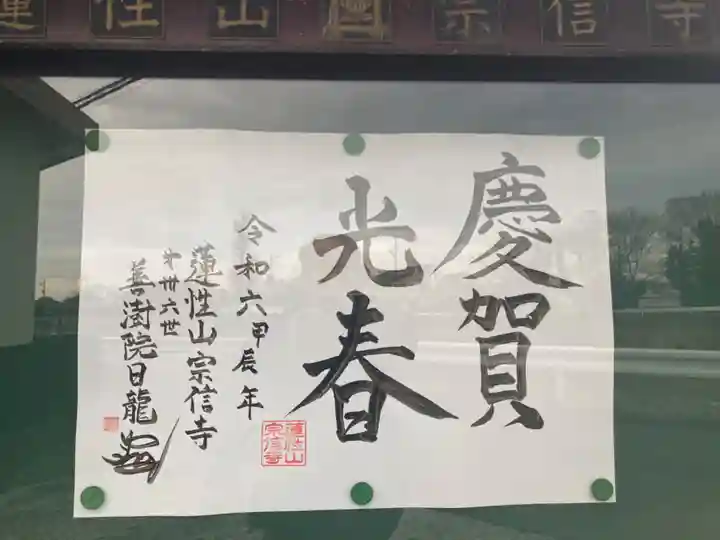 蓮性山 宗信寺
慶賀
光春
令和六甲辰年
蓮性山宗信寺
第卅六世
善澍院日龍
蓮性山
宗信寺